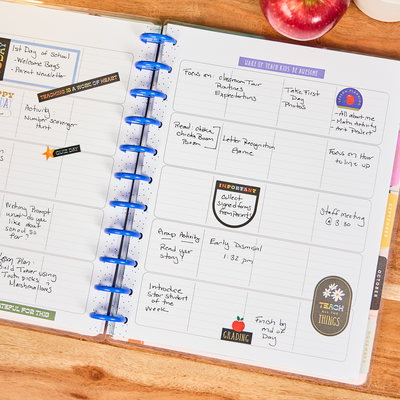 1st Day of school
- Welcome Bags
- Parent Newsletter
TEACHING IS A WORK OF HEART
Activity
Number scavenger
Hunt
QUIZ DAY
Writing Prompt
what do
you like
about
school so
far?
Plan:
Build Tower using
Tooth picks &
Marshmallows
GRATEFUL FOR THIS
WAKE UP. TEACH KIDS. BE AWESOME.
Focus on: Classroom Tour
Routines
Expectations
Take First
Day
Photos
- All about me
- Math Activity
- Art Project
Read: chicka
chicka Boom
Boom
Letter Recognition
Game
Focus on How
to line up
IMPORTANT
Collect
signed forms
from Parents!
Staff Meeting
@ 3:30
Group Activity
Read your
story!
Early Dismissal
1:32 pm
Introduce
Star Student
of the
Week
GRADING
Finish by
end of
Day
TEACH
ALL THE
THINGS
OCTOBER